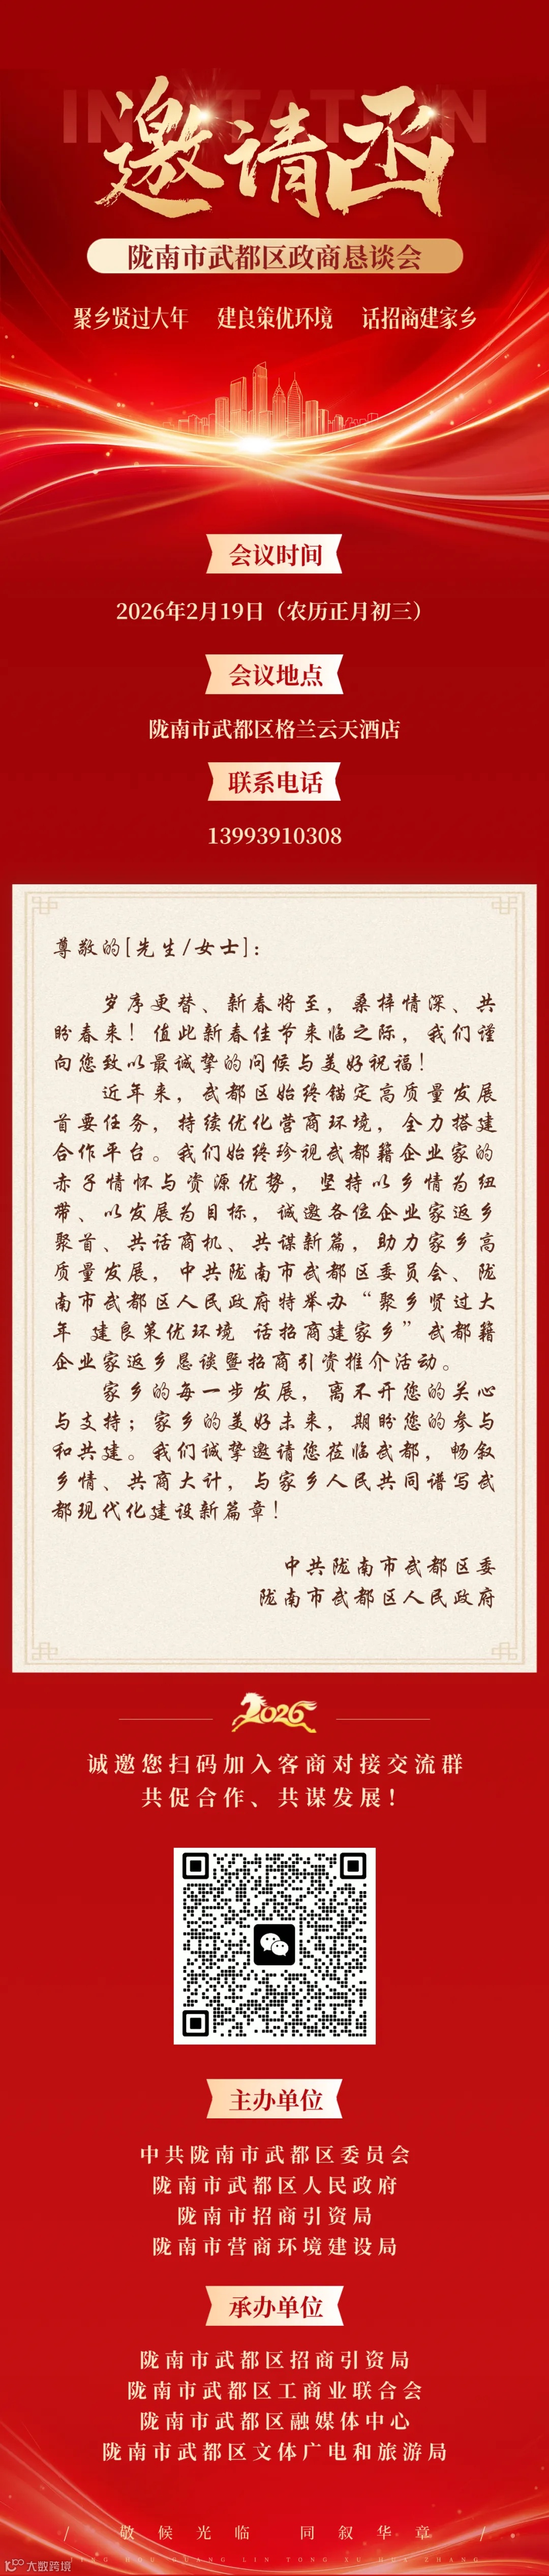 INVITATION
邀请函
陇南市武都区政商恳谈会
聚乡贤过大年 建良策优环境 话招商建家乡
会议时间
2026年2月19日（农历正月初三）
会议地点
陇南市武都区格兰云天酒店
联系电话
13993910308
尊敬的[先生/女士]：
岁序更替、新春将至，桑梓情深、共
盼春来！值此新春佳节来临之际，我们谨
向您致以最诚挚的问候与美好祝福！
近年来，武都区始终锚定高质量发展
首要任务，持续优化营商环境，全力搭建
合作平台。我们始终珍视武都籍企业家的
赤子情怀与资源优势，坚持以乡情为纽
带、以发展为目标，诚邀各位企业家返乡
聚首、共话商机、共谋新篇，助力家乡高
质量发展，中共陇南市武都区委员会、陇
南市武都区人民政府特举办“聚乡贤过大
年 建良策优环境 话招商建家乡”武都籍
企业家返乡恳谈暨招商引资推介活动。
家乡的每一步发展，离不开您的关心
与支持；家乡的美好未来，期盼您的参与
和共建。我们诚挚邀请您莅临武都，畅叙
乡情、共商大计，与家乡人民共同谱写武
都现代化建设新篇章！
中共陇南市武都区委
陇南市武都区人民政府
2026
诚邀您扫码加入客商对接交流群
共促合作、共谋发展！
主办单位
中共陇南市武都区委员会
陇南市武都区人民政府
陇南市招商引资局
陇南市营商环境建设局
承办单位
陇南市武都区招商引资局
陇南市武都区工商业联合会
陇南市武都区融媒体中心
陇南市武都区文体广电和旅游局
/ 敬候光临 同叙华章 /
JING HOU GUANG LIN TONG XU HUA ZHANG
大数跨境